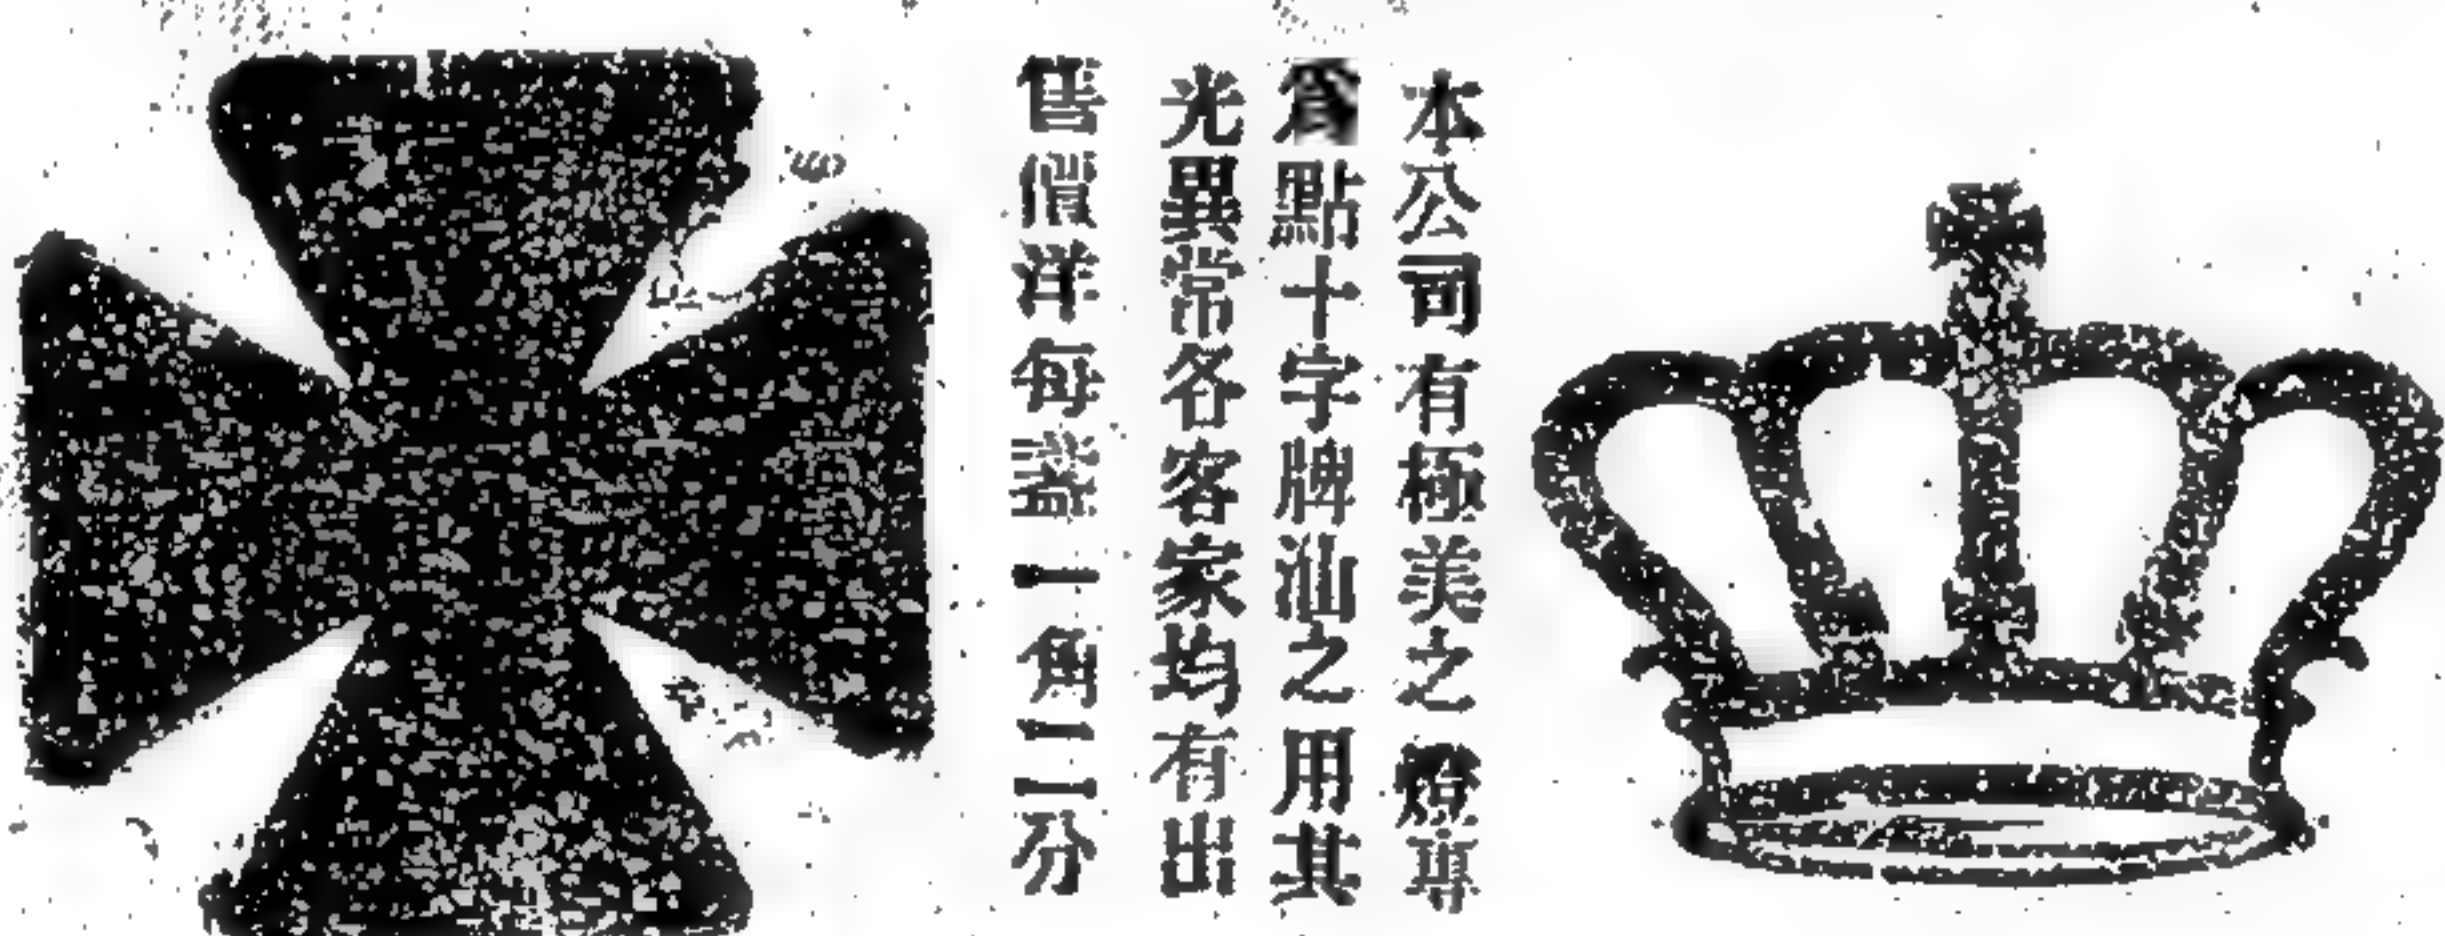 本公司有極美之燈專
爲點十字牌汕之用其
光異常各客家均有出
售價洋每盞一角二分